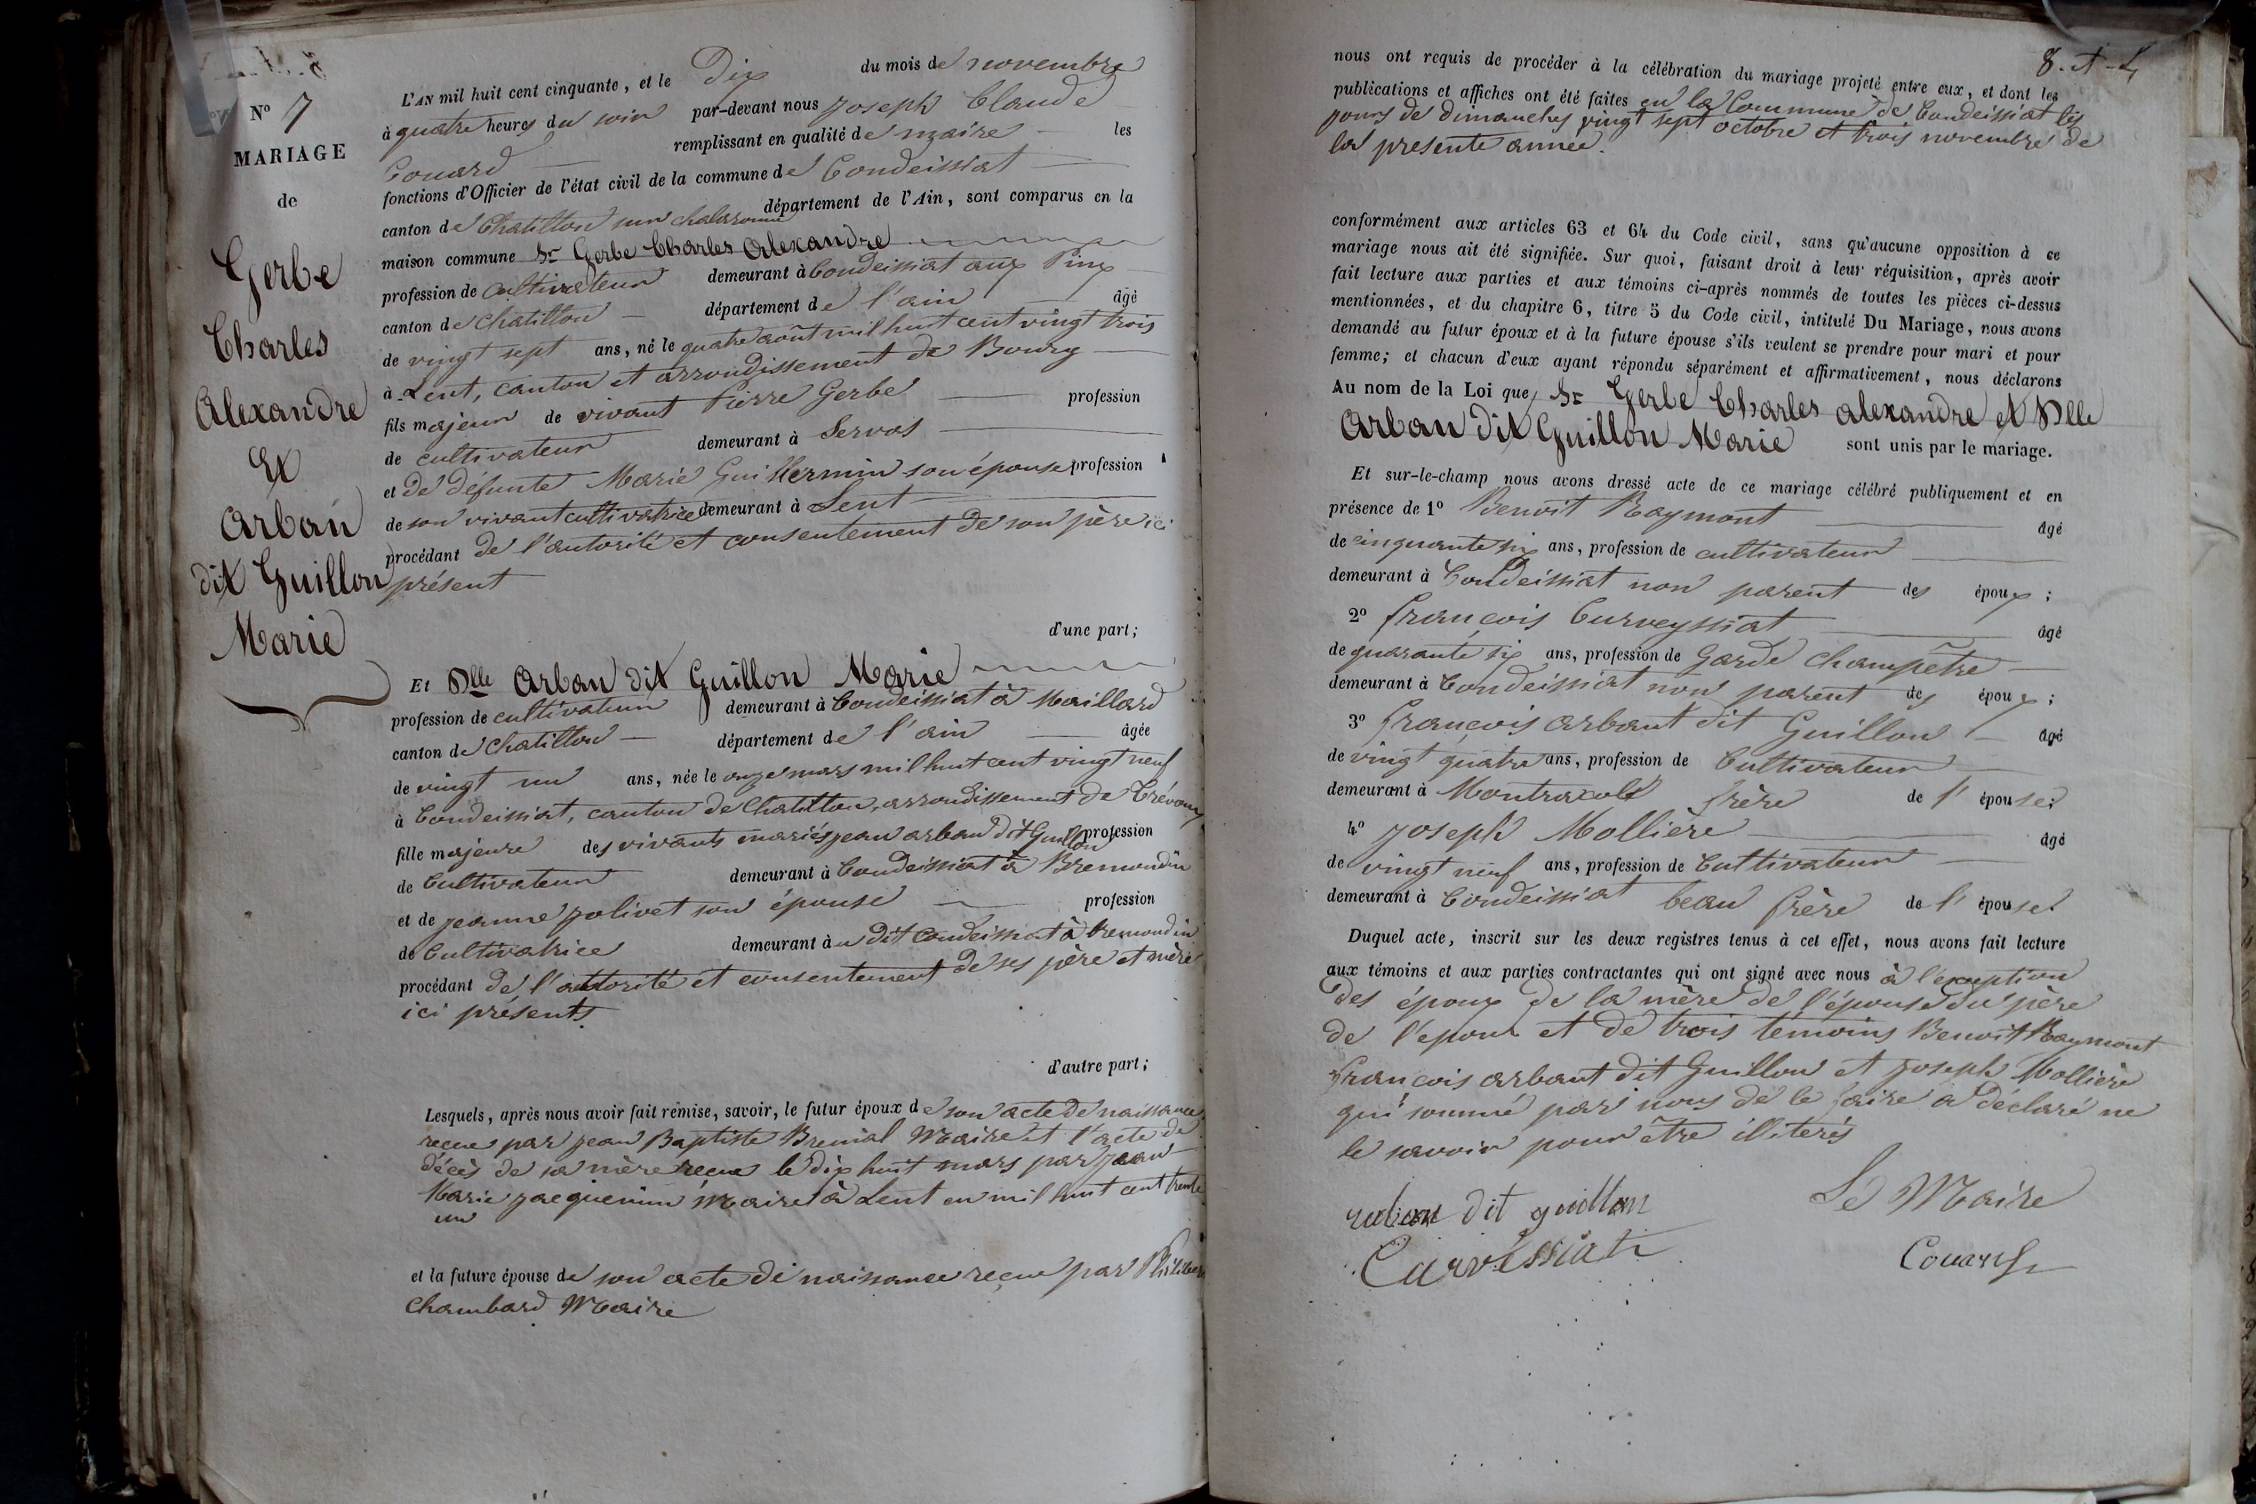 N° 7
MARIAGE
de
Gerbe
Charles
Alexandre
Et
Arban
dit Guillon
Marie
L'AN mil huit cent cinquante, et le Dix du mois de novembre
à quatre heures du soir par-devant nous joseph Claude
Couard remplissant en qualité de maire les
fonctions d'Officier de l'état civil de la commune de Condeissiat
canton de Chatillon sur chalaronne département de l'Ain, sont comparus en la
maison commune Sr Gerbe Charles Alexandre
profession de cultivateur demeurant à Condeissiat aux Pins
canton de Chatillon département de l'ain âgé
de vingt sept ans, né le quatre août mil huit cent vingt trois
à Lent, canton et arrondissement de Bourg
fils majeur de vivant Pierre Gerbe profession
de cultivateur demeurant à Servas
et de défunte Marie Guillermin son épouse profession
de son vivant cultivatrice demeurant à Lent
procédant de l'autorité et consentement de son père ici
présent
d'une part;
Et Dlle Arban dit Guillon Marie
profession de cultivateur demeurant à Condeissiat à Maillard
canton de Chatillon département de l'ain âgée
de vingt un ans, née le onze mars mil huit cent vingt neuf
à Condeissiat, canton de Chatillon, arrondissement de Trévoux
fille majeure des vivants mariés jean arban dit Guillon profession
de Cultivateur demeurant à Condeissiat à Bremondin
et de jeanne jolivet son épouse profession
de Cultivatrice demeurant au dit Condeissiat à bremondin
procédant de l'autorité et consentement de ses père et mère
ici présents
d'autre part;
Lesquels, après nous avoir fait remise, savoir, le futur époux de son acte de naissance
reçue par jean Baptiste Maire et l'acte de
décès de sa mère reçue le dix huit mars par jean
Marie jacquemin Maire à Lent en mil huit cent trente
un
et la future épouse de son acte de naissance reçue par Philibert
Chambard Maire
8. A-L
nous ont requis de procéder à la célébration du mariage projeté entre eux, et dont les
publications et affiches ont été faites en la Commune de Condeissiat les
jours de dimanches vingt sept octobre et trois novembre de
la presente année.
conformément aux articles 63 et 64 du Code civil, sans qu'aucune opposition à ce
mariage nous ait été signifiée. Sur quoi, faisant droit à leur réquisition, après avoir
fait lecture aux parties et aux témoins ci-après nommés de toutes les pièces ci-dessus
mentionnées, et du chapitre 6, titre 5 du Code civil, intitulé Du Mariage, nous avons
demandé au futur époux et à la future épouse s'ils veulent se prendre pour mari et pour
femme; et chacun d'eux ayant répondu séparément et affirmativement, nous déclarons
Au nom de la Loi que Sr Gerbe Charles alexandre et Dlle
Arban dit Guillon Marie sont unis par le mariage.
Et sur-le-champ nous avons dressé acte de ce mariage célébré publiquement et en
présence de 1° Benoit Raymont âgé
de cinquante six ans, profession de cultivateur
demeurant à Condeissiat non parent des époux;
2° françois Curveyssiat âgé
de quarante six ans, profession de Garde champêtre
demeurant à Condeissiat non parent des époux;
3° françois arbant dit Guillon âgé
de vingt quatre ans, profession de Cultivateur
demeurant à Montracol frère de l'épouse;
4° joseph Mollière âgé
de vingt neuf ans, profession de Cultivateur
demeurant à Condeissiat beau frère de l'épouse.
Duquel acte, inscrit sur les deux registres tenus à cet effet, nous avons fait lecture
aux témoins et aux parties contractantes qui ont signé avec nous à l'exception
des époux de la mère de l'épouse du père
de l'epoux et de trois témoins Benoit Raymont
françois arbant dit Guillon et joseph Mollière
qui sommé par nous de le faire a déclaré ne
le savoir pour être illiterés
arban dit guillon
Curvéssiat
Le Maire
Couard